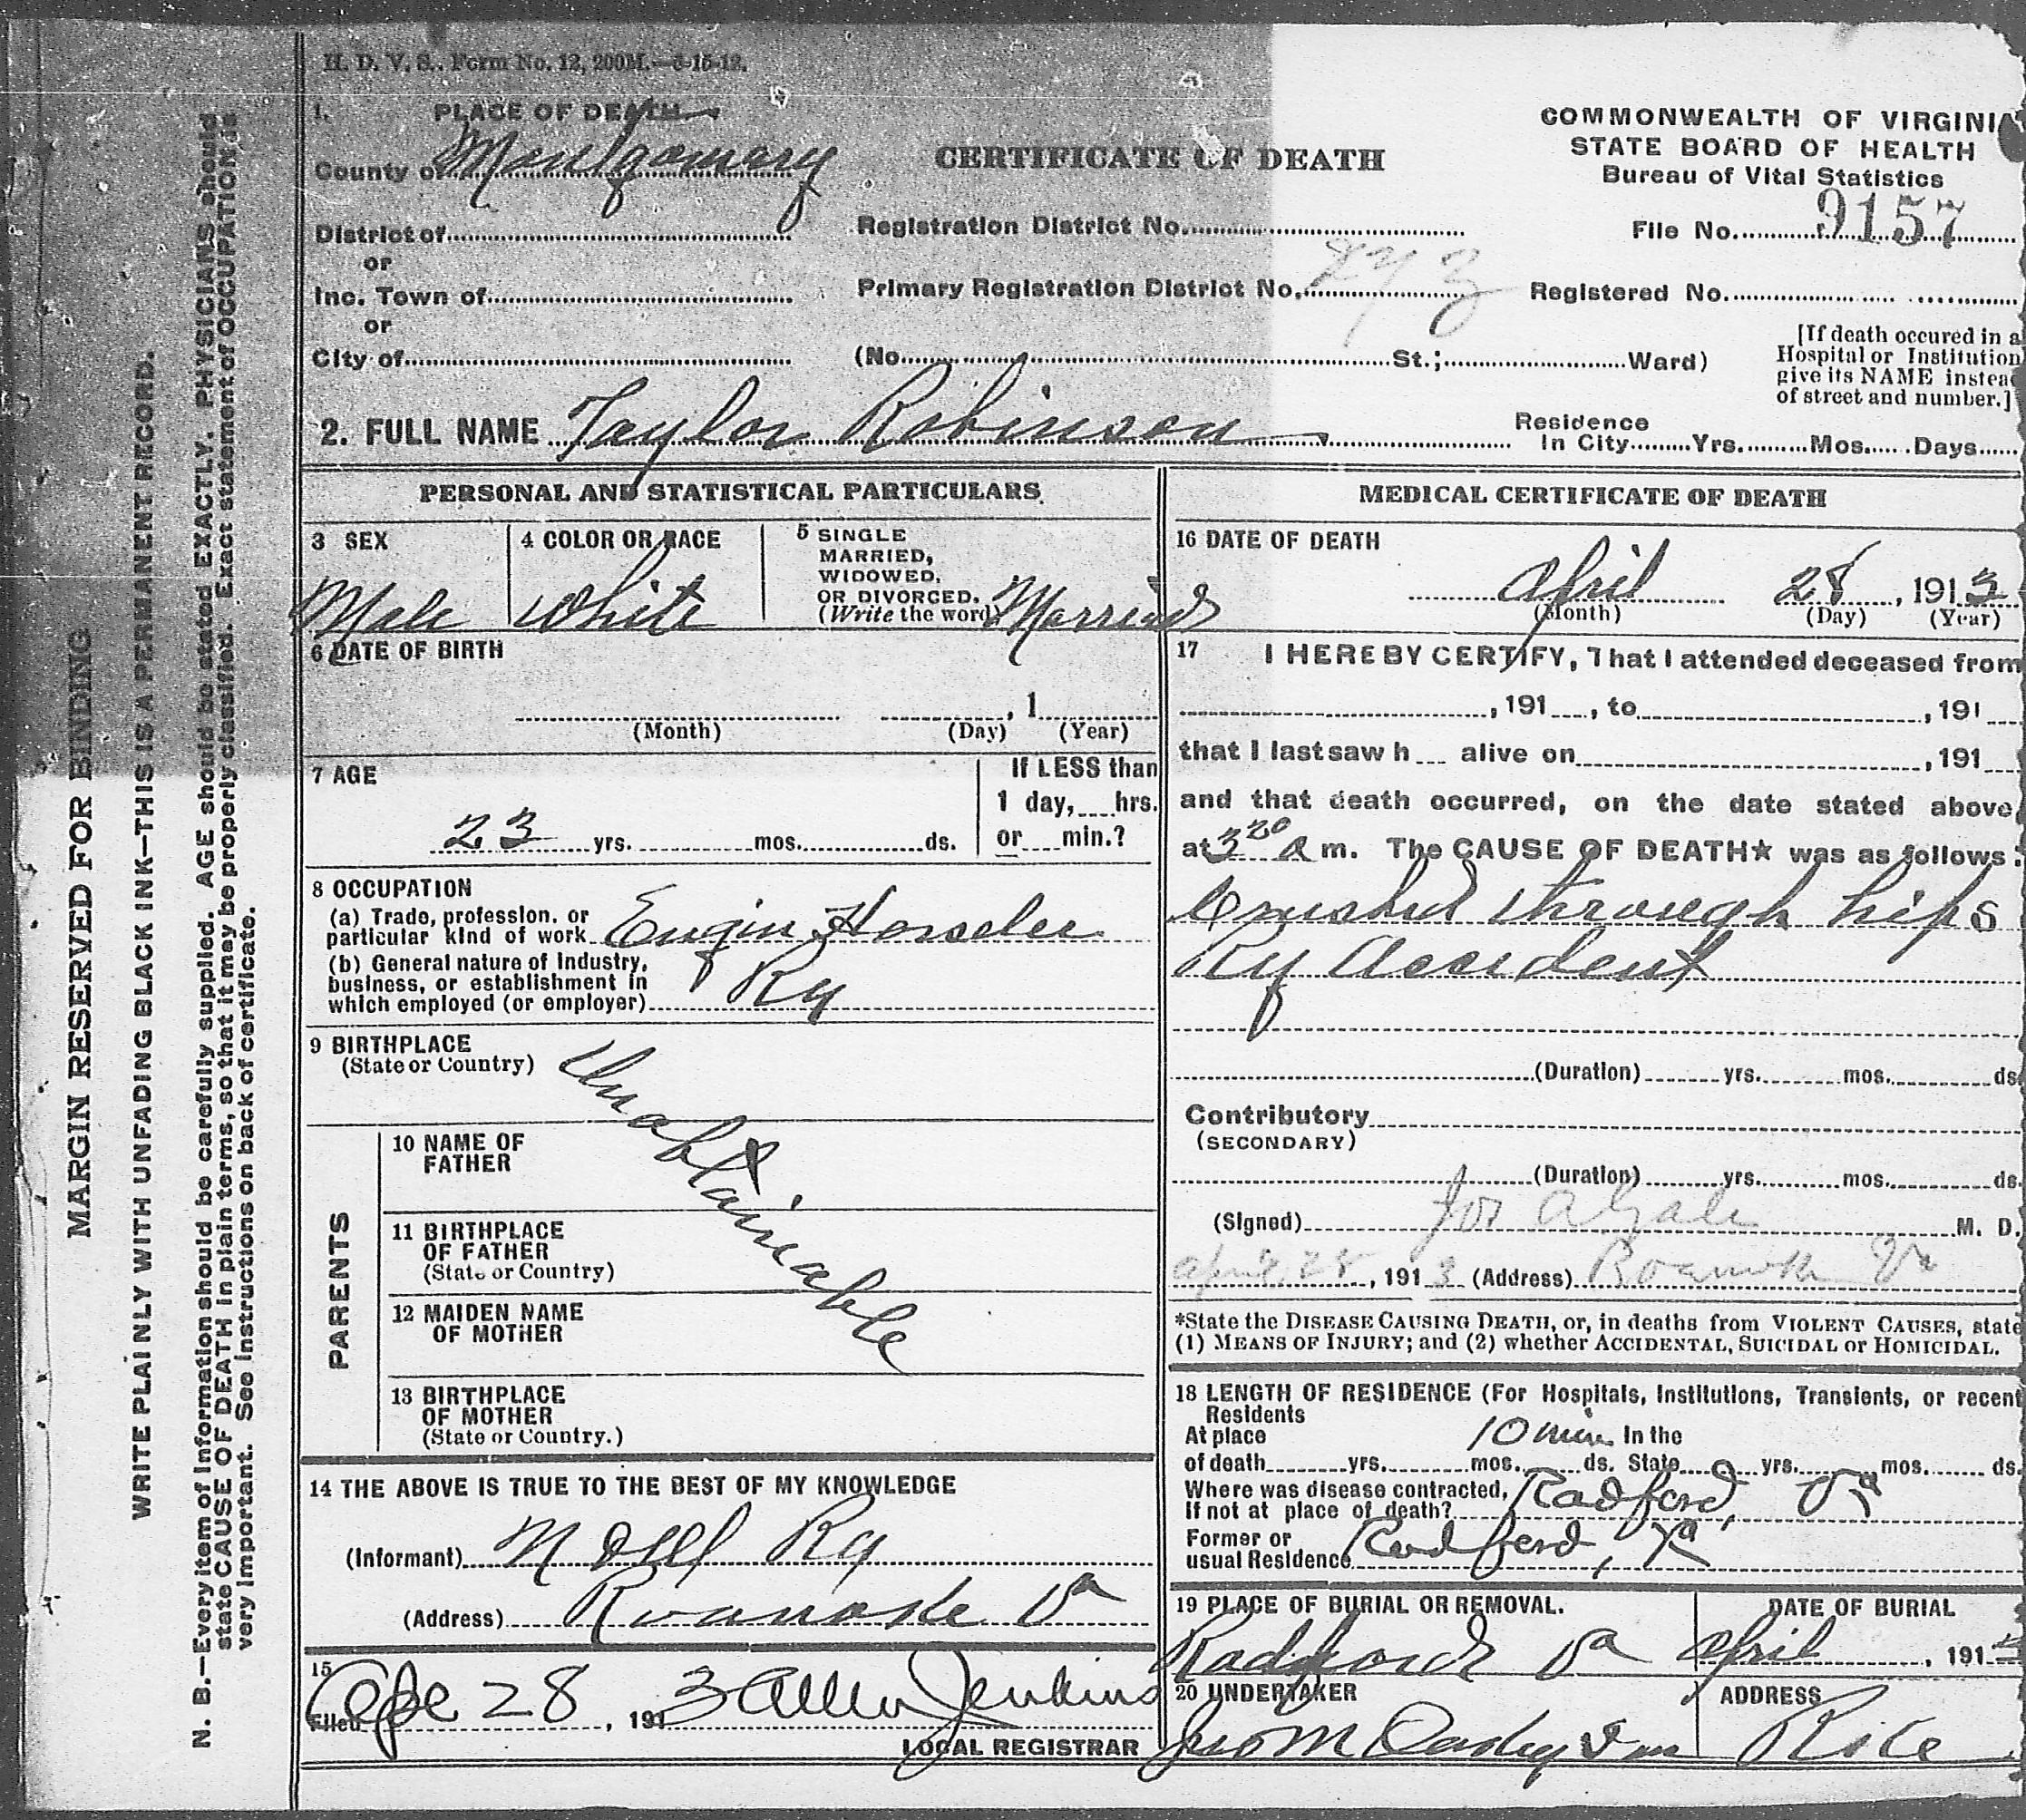 H. D. V. S.. Form No. 12, 200M.—6-15-12.
1. PLACE OF DEATH
County of Montgomary
District of
or
Inc. Town of
or
City of
CERTIFICATE OF DEATH
Registration District No.
Primary Registration District No.
(No. St.; Ward)
COMMONWEALTH OF VIRGINIA
STATE BOARD OF HEALTH
Bureau of Vital Statistics
File No. 9157
Registered No.
[If death occured in a
Hospital or Institution
give its NAME instea
of street and number.]
2. FULL NAME Taylor Robinson
Residence
In City Yrs. Mos. Days
PERSONAL AND STATISTICAL PARTICULARS
3 SEX
Male
4 COLOR OR RACE
White
5 SINGLE
MARRIED,
WIDOWED,
OR DIVORCED.
(Write the word) Married
6 DATE OF BIRTH
, 1
(Month) (Day) (Year)
7 AGE
23 yrs. mos. ds.
If LESS than
1 day, hrs.
or min.?
8 OCCUPATION
(a) Trade, profession, or
particular kind of work Engin Hosseler
(b) General nature of Industry,
business, or establishment in
which employed (or employer) Ry
9 BIRTHPLACE
(State or Country)
Unobtainable
PARENTS
10 NAME OF
FATHER
11 BIRTHPLACE
OF FATHER
(State or Country)
12 MAIDEN NAME
OF MOTHER
13 BIRTHPLACE
OF MOTHER
(State or Country.)
14 THE ABOVE IS TRUE TO THE BEST OF MY KNOWLEDGE
(Informant) Ry
(Address) Roanoke Va
15
Filed Apr 28, 1913 Allen Jenkins
LOCAL REGISTRAR
MEDICAL CERTIFICATE OF DEATH
16 DATE OF DEATH
April 28, 1913
(Month) (Day) (Year)
17 I HEREBY CERTIFY, That I attended deceased from
, 191 , to , 191
that I last saw h alive on , 191
and that death occurred, on the date stated above,
at 3 20 a m. The CAUSE OF DEATH* was as follows:
Crushed through hips
Ry Accident
(Duration) yrs. mos. ds
Contributory
(SECONDARY)
(Duration) yrs. mos. ds.
(Signed) Jos A Gale M. D.
April 28, 1913 (Address) Roanoke Va
*State the DISEASE CAUSING DEATH, or, in deaths from VIOLENT CAUSES, state
(1) MEANS OF INJURY; and (2) whether ACCIDENTAL, SUICIDAL or HOMICIDAL.
18 LENGTH OF RESIDENCE (For Hospitals, Institutions, Transients, or recent
Residents
At place 10 min In the
of death yrs. mos. ds. State yrs. mos. ds.
Where was disease contracted,
If not at place of death? Radford, Va
Former or
usual Residence Radford, Va
19 PLACE OF BURIAL OR REMOVAL.
Radford Va
DATE OF BURIAL
April , 1913
20 UNDERTAKER
ADDRESS
MARGIN RESERVED FOR BINDING
WRITE PLAINLY WITH UNFADING BLACK INK—THIS IS A PERMANENT RECORD.
N. B.—Every item of information should be carefully supplied. AGE should be stated EXACTLY. PHYSICIANS should
state CAUSE OF DEATH in plain terms, so that it may be properly classified. Exact statement of OCCUPATION is
very important. See instructions on back of certificate.